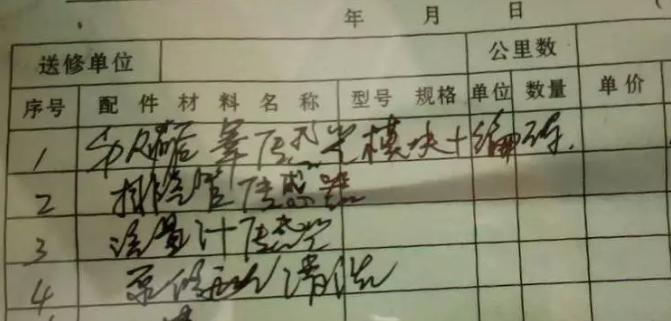 年 月 日
送修单位 公里数
序号 配件材料名称 型号 规格 单位 数量 单价
1 模块+编码
2 排 管传感器
3 流量计传感器
4 泵 清洗